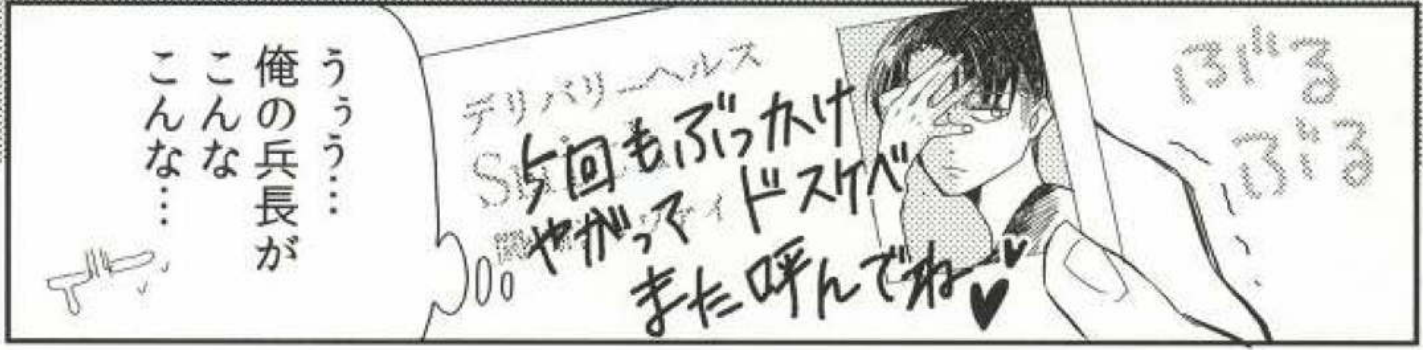 ぶる
ぶる
デリバリーヘルス
今回もぶっかけ
やがって ドスケベ
また呼んでね♥♥
うぅう…
俺の兵長が
こんな
こんな…